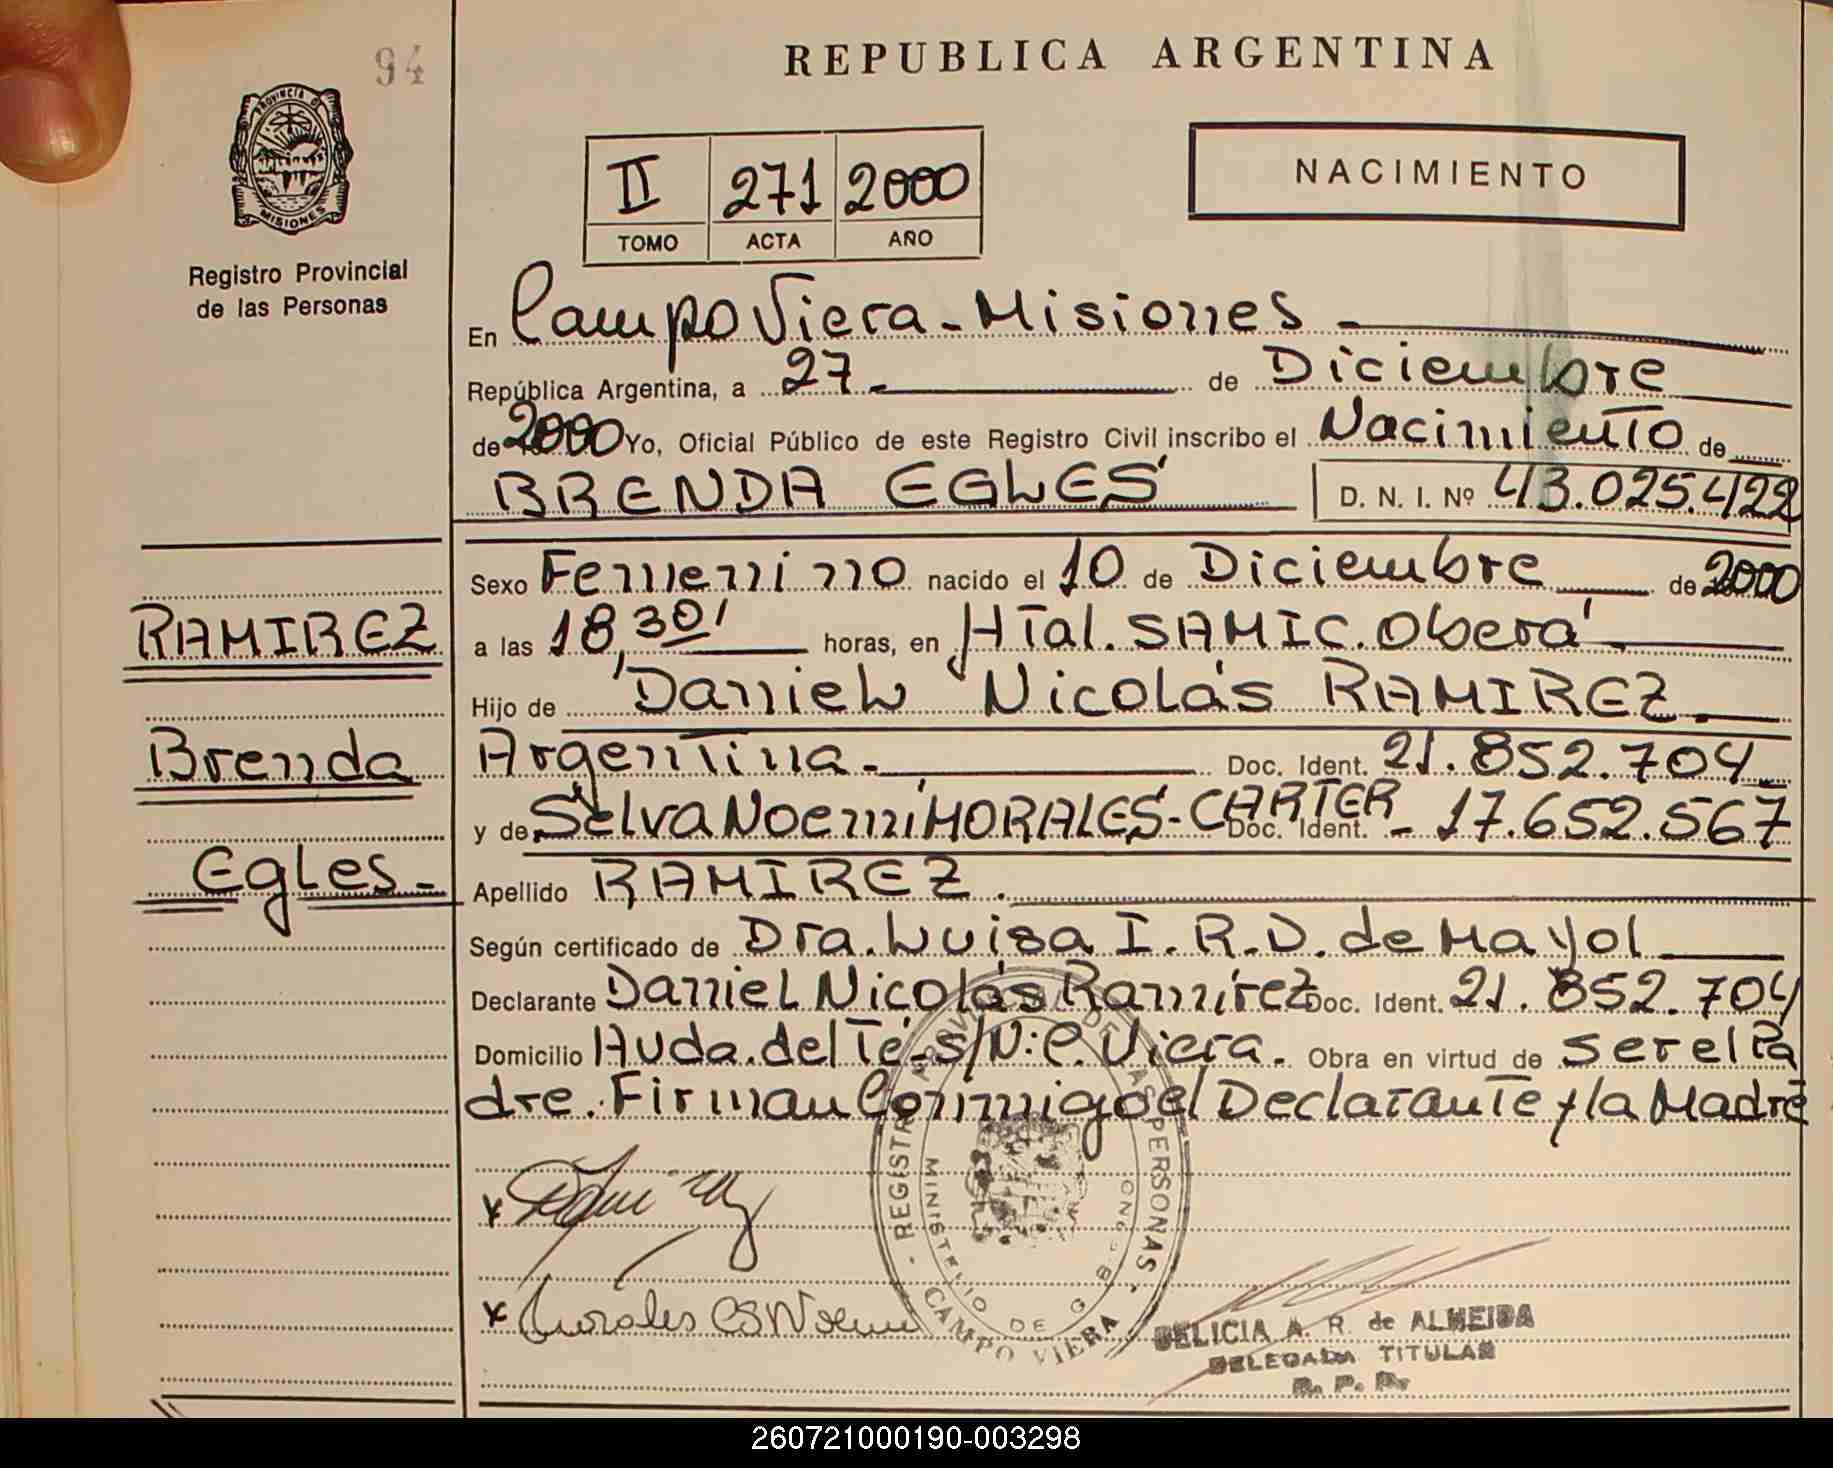 94
REPUBLICA ARGENTINA
PROVINCIA D
MISIONES
Registro Provincial
de las Personas
II 271 2000
TOMO ACTA AÑO
NACIMIENTO
En Campo Viera - Misiones -
República Argentina, a 27 - de Diciembre
de 2000 Yo, Oficial Público de este Registro Civil inscribo el Nacimiento de
BRENDA EGLES D. N. I. Nº 43.025.422
Sexo Femenino nacido el 10 de Diciembre de 2000
a las 18,30' horas, en HTal. SAMIC. Oberá -
Hijo de Daniel Nicolás RAMIREZ -
Argentina - Doc. Ident. 21.852.704 -
y de Selva Noemí MORALES - CARTER Doc. Ident. - 17.652.567
Apellido RAMIREZ.
Según certificado de Dra. Luisa I. R. D. de Mayol
Declarante Daniel Nicolás Ramírez Doc. Ident. 21.852.704
Domicilio Avda. del Té - s/N: C. Viera. Obra en virtud de ser el Pa
dre. Firman Conmigo el Declarante y la Madre
RAMIREZ
Brenda
Egles -
x
x Morales
REGISTRO PROVINCIAL DE LAS PERSONAS
MINISTERIO DE GOBIERNO
CAMPO VIERA
DELICIA A. R. de ALMEIDA
DELEGADA TITULAR
R. P. P.
260721000190-003298